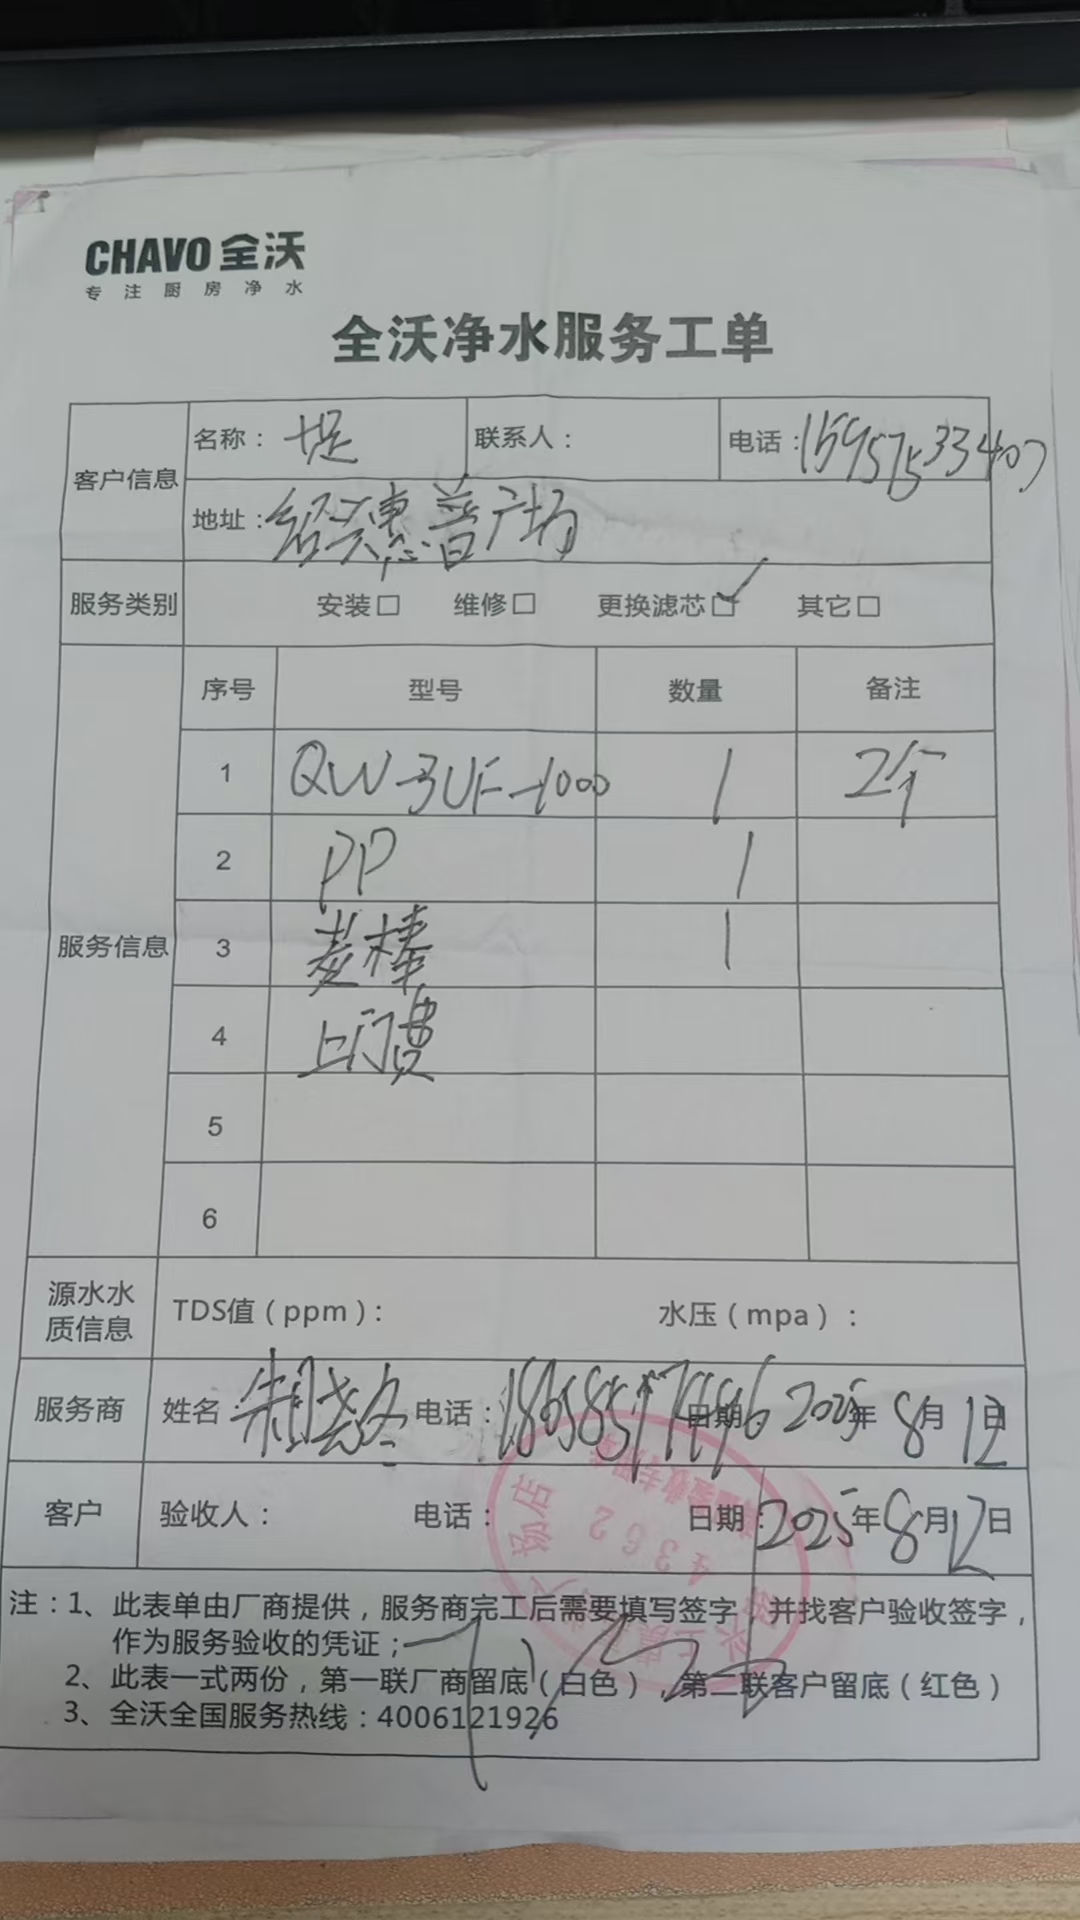 CHAVO 全沃
专注厨房净水
全沃净水服务工单
客户信息 名称：堤 联系人： 电话：15957533407
地址：绍兴惠普广场
服务类别 安装□ 维修□ 更换滤芯□✓ 其它□
服务信息 序号 型号 数量 备注
1 QW-3UF-1000 1 2个
2 PP 1
3 炭棒 1
4 上门费
5
6
源水水质信息 TDS值（ppm）： 水压（mpa）：
服务商 姓名： 电话： 日期 2025年8月12日
客户 验收人： 电话： 日期：2025年8月12日
注：1、此表单由厂商提供，服务商完工后需要填写签字，并找客户验收签字，
作为服务验收的凭证；
2、此表一式两份，第一联厂商留底（白色），第二联客户留底（红色）
3、全沃全国服务热线：4006121926
4362